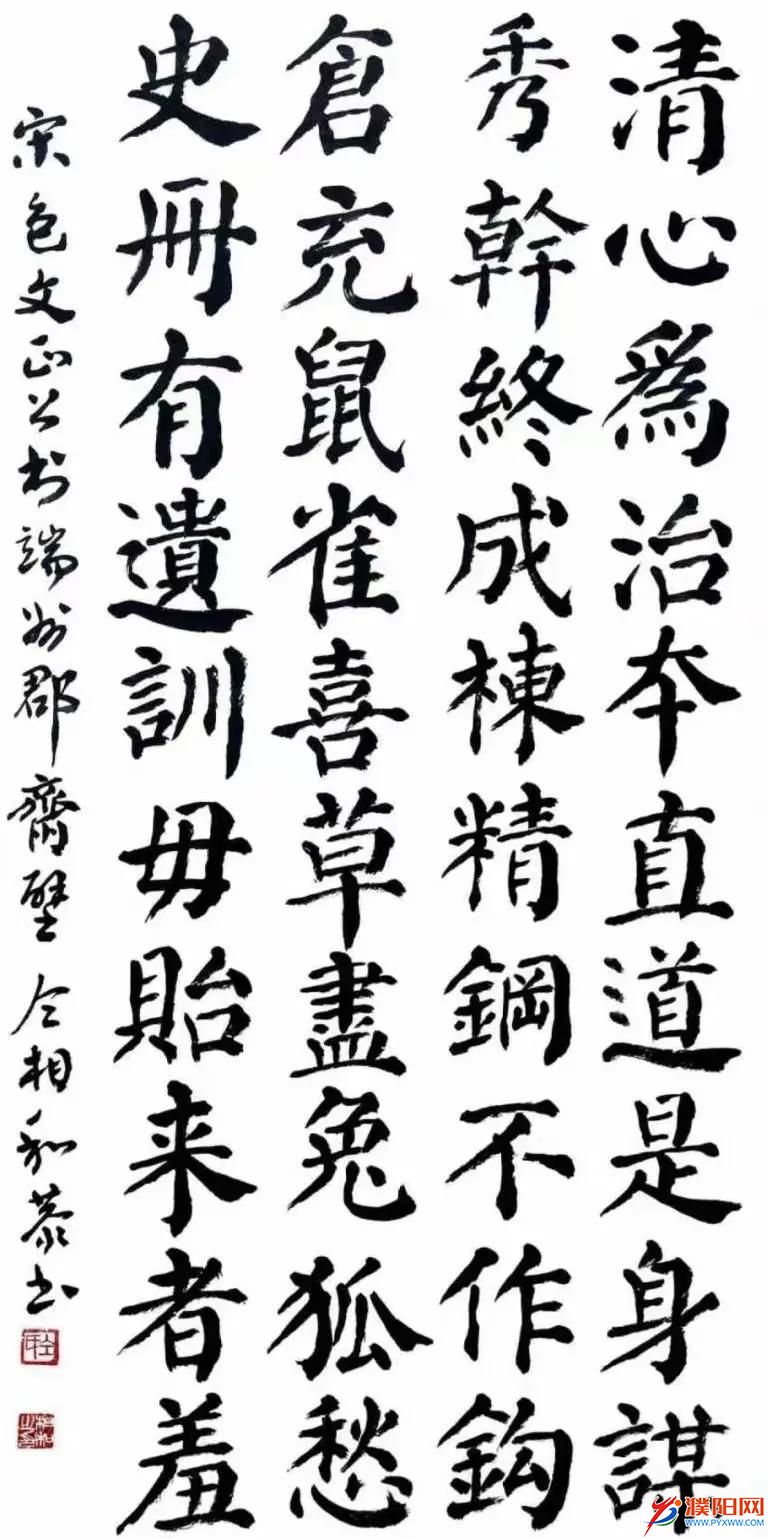 清心爲治本直道是身謀
秀幹終成棟精鋼不作鈎
倉充鼠雀喜草盡兔狐愁
史冊有遺訓毋貽来者羞
宋包文正公於端州郡齋壁 仝相和恭书
濮阳网
WWW.PYXWW.COM